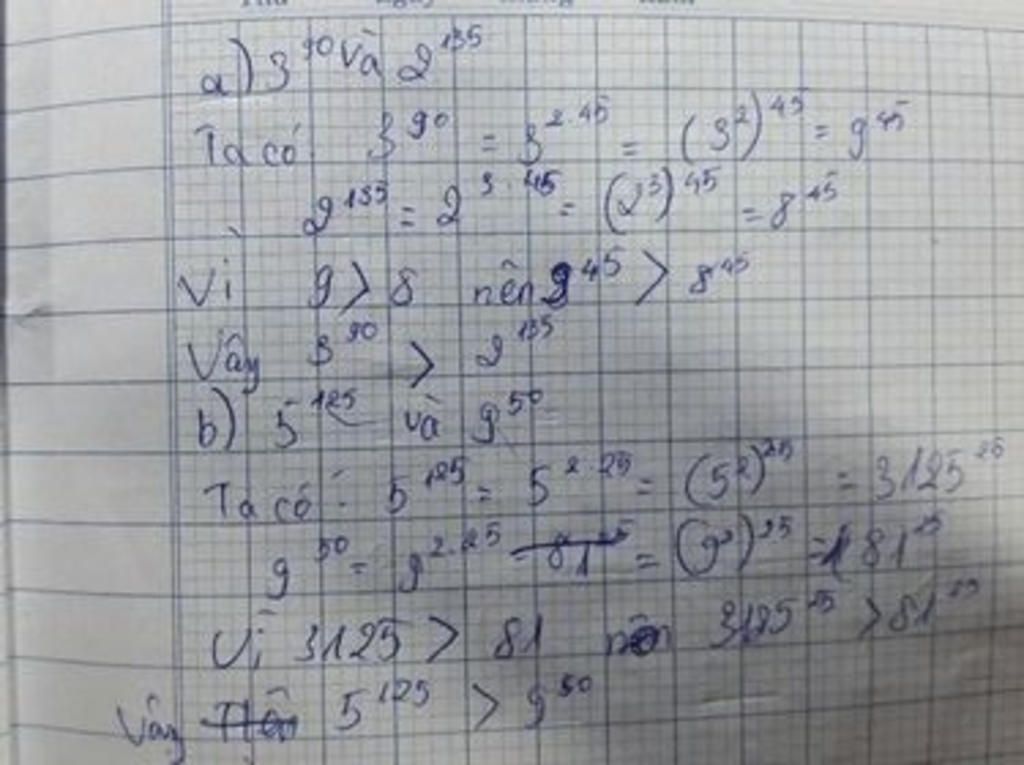 a) 3^90 và 2^135
Ta có 3^90 = 3^2.45 = (3^2)^45 = 9^45
2^135 = 2^3.45 = (2^3)^45 = 8^45
Vì 9 > 8 nên 9^45 > 8^45
Vậy 3^90 > 2^135
b) 5^125 và 9^50
Ta có: 5^125 = 5^2.25 = (5^2)^25 = 3125^25
9^50 = 9^2.25 = (9^2)^25 = 81^25
Vì 3125 > 81 nên 3125^25 > 81^25
Vậy 5^125 > 9^50